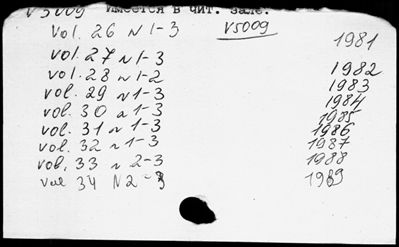 V5009 имеется в чит. зале.
V5009
vol. 26 N 1-3 1981
vol. 27 N 1-3
vol. 28 N 1-2 1982
vol. 29 N 1-3 1983
vol. 30 N 1-3 1984
vol. 31 N 1-3 1985
vol. 32 N 1-3 1986
vol. 33 N 2-3 1987
vol 34 N2-3 1988
1989